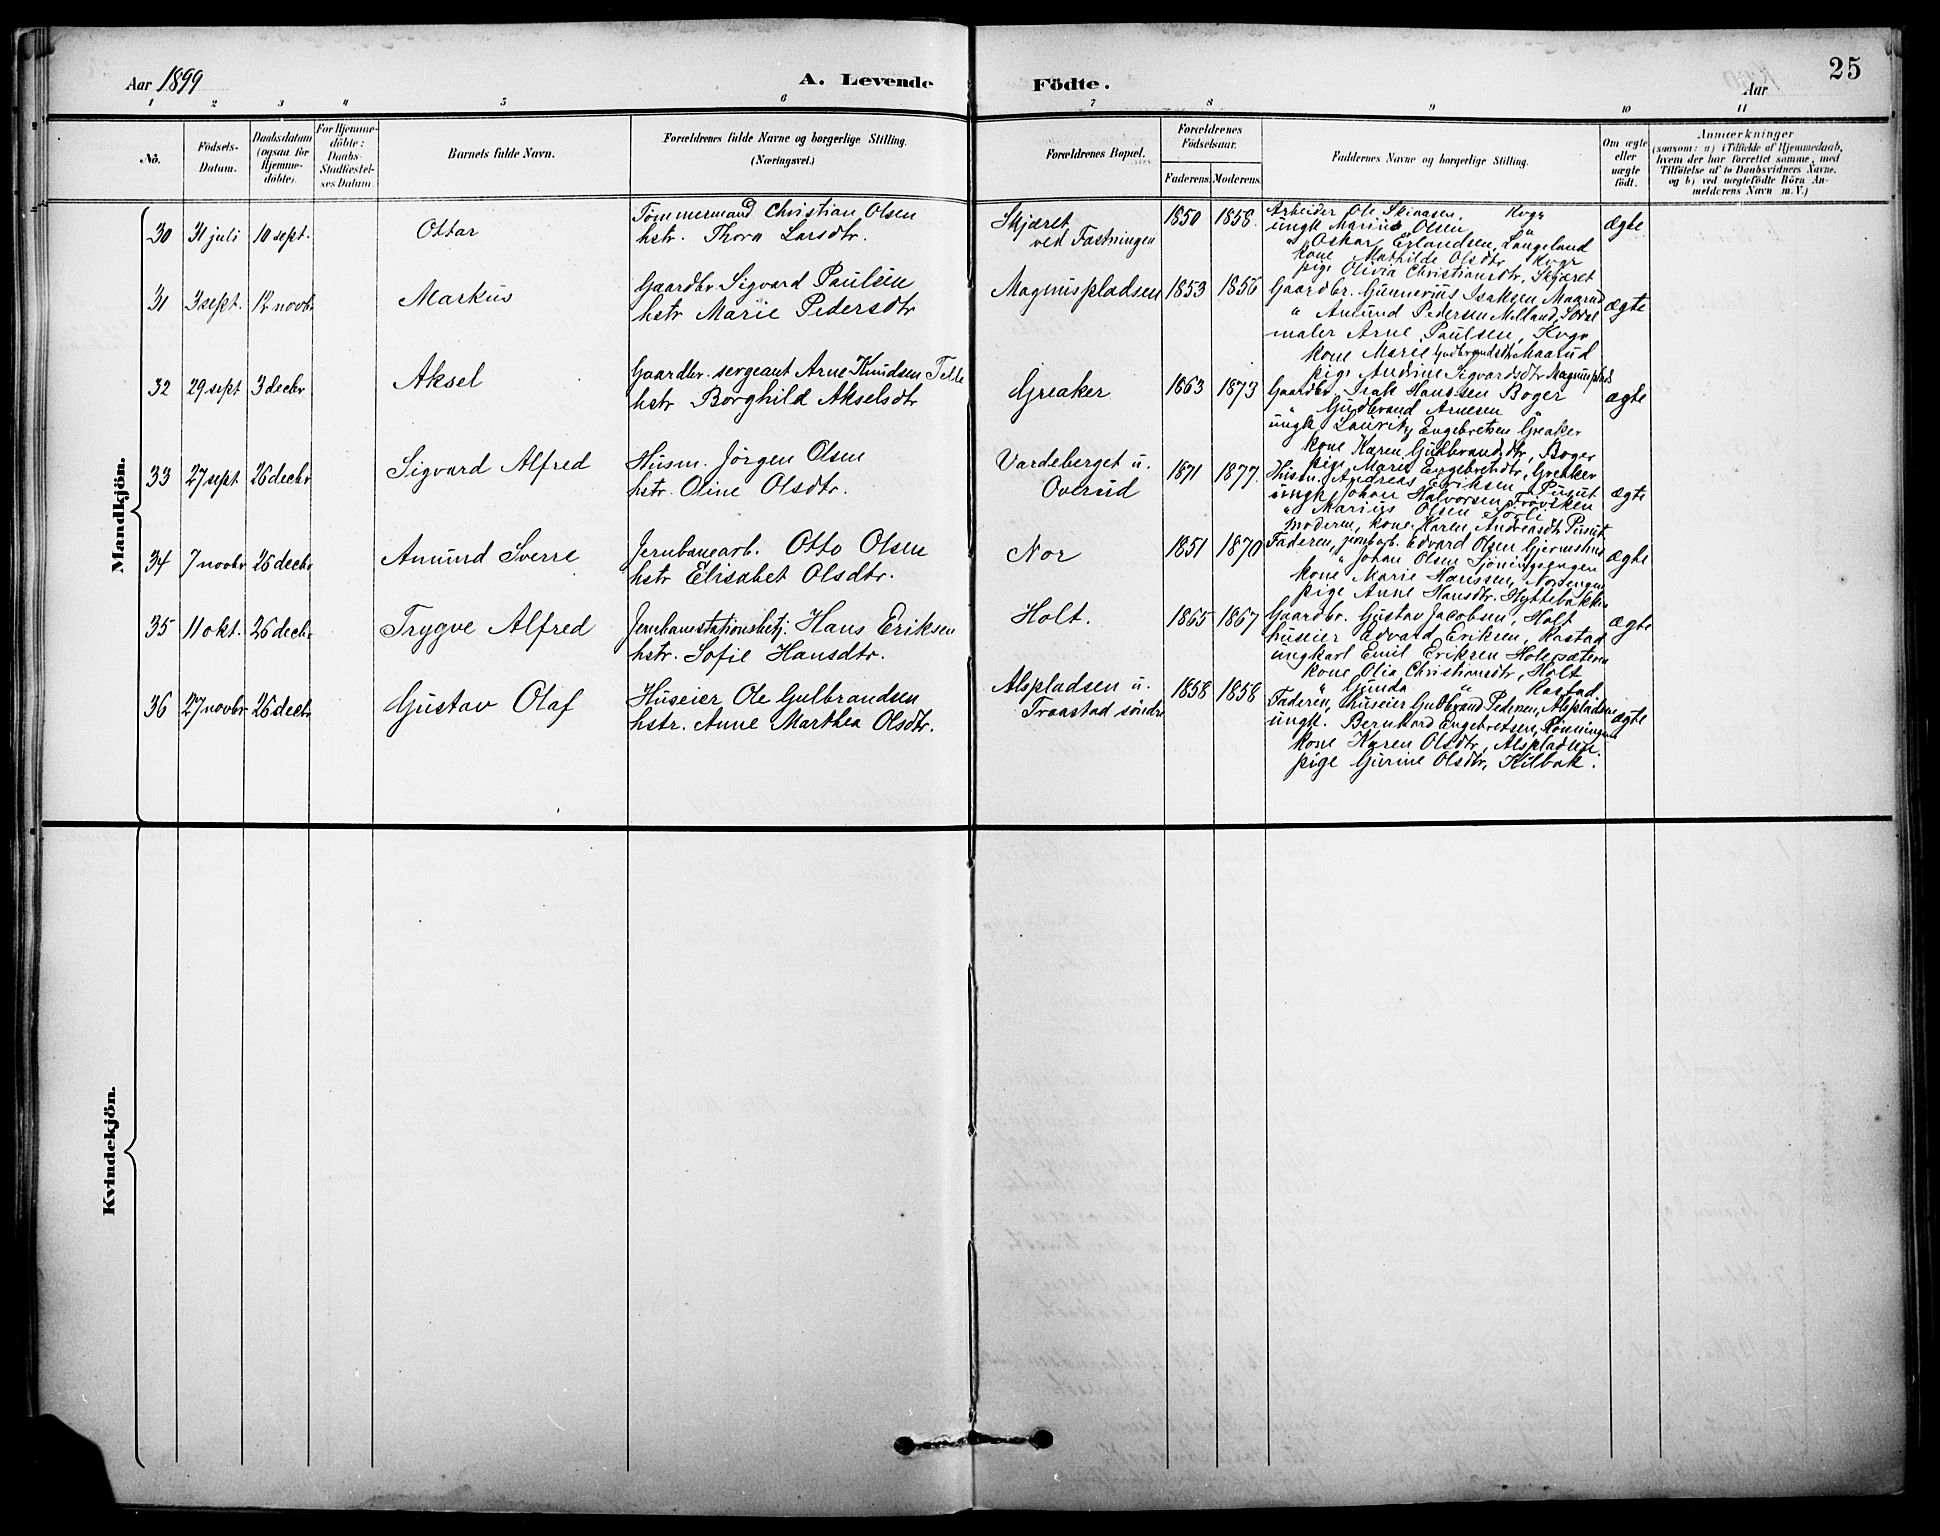 Aar 1899
A. Levende Födte.
Aar
25
1 2 3 4 5 6 7 8 9 10 11
No.
Födsels-Datum.
Daabsdatum (ogsaa for Hjemme-döbte).
For Hjemme-döbte: Daabs-Stadfæstel-ses Datum.
Barnets fulde Navn.
Forældrenes fulde Navne og borgerlige Stilling. (Næringsvei.)
Forældrenes Bopæl.
Forældrenes Födselsaar.
Faderens. Moderens.
Faddernes Navne og borgerlige Stilling.
Om ægte eller uægte födt.
Anmærkninger
(saasom: a) i Tilfælde af Hjemmedaab, hvem der har forrettet samme, med Tilföielse af to Daabsvidners Navne, og b) ved uægtefödte Börn An-melderens Navn m. V.)
Mandkjön.
30 31 juli 10 sept. Ottar
Tömmermand Christian Olsen
hstr. Thora Larsdtr.
Skjæret
ved Fæstningen
1850 1858.
Arbeider Ole Skinasen, Kvgr
ungk Marius Olsen "
" Oskar Erlandsen, Langeland
kone Mathilde Olsdtr Kvgr
pige Olivia Christiansdtr, Skjæret
ægte
31 3 sept. 12 novbr Markus
Gaardbr. Sigvard Paulsen
hstr Marie Pedersdtr
Magnuspladsen 1853 1856
Gaardbr. Gunnerius Isaksen, Maarud
" Amund Pedersen Melland,
maler Arne Paulsen, Kvgr
kone Marie Gudbrandsdtr Maarud
pige Andrine Sigvardsdtr Magnusplads
ægte
32 29 sept 3 decbr Aksel
Gaardbr. sergeant Arne Knudsen
hstr Borghild Akselsdtr
Greaker 1863 1873
Gaardbr Isak Hanssen Boger
" Gudbrand Arnesen "
ungk Lauritz Engebretsen Greaker
kone Karen Gulbrandsdtr, Boger
pige Marie Engebretsdtr, Greaker
ægte
33 27 sept 26 decbr Sigvard Alfred
Husm. Jörgen Olsen
hstr. Oline Olsdtr.
Vardeberget u.
Overud
1871 1877.
Husm. Andreas Eriksen, Punt
ungk Johan Halvorsen
" Marius Olsen
Moderen, kone Karen Andreasdtr Punt
ægte
34 7 novbr 26 decbr Amund Sverre
Jernbanearb. Otto Olsen
hstr Elisabet Olsdtr.
Nor 1851 1870
Faderen, jernbarb. Edvard Olsen
" Johan Olsen
kone Marie Hanssen, Norengen
pige Anne Hansdtr. Hyttebakken
ægte
35 11 okt. 26 decbr Trygve Alfred
Jernbanestationsbetj. Hans Eriksen
hstr. Sofie Hansdtr.
Holt. 1865 1867
Gaardbr. Gustav Jacobsen, Holt
huseier Edvard Eriksen, Rastad
ungkarl Emil Eriksen Holtsæteren
kone Olia Christiansdtr, Holt
" Gunda " Rastad
ægte
36 27 novbr 26 decbr Gustav Olaf
Huseier Ole Gulbrandsen
hstr. Anne Marthea Olsdtr.
Alspladsen u.
Traastad söndre
1858 1858
Faderen, huseier Gulbrand Pedersen, Alspladsen
ungk. Bernhard Engebretsen, Rönningen
kone Karen Olsdtr, Alspladsen.
pige Gurine Olsdtr, Kilbak.
ægte
Kvindekjön.